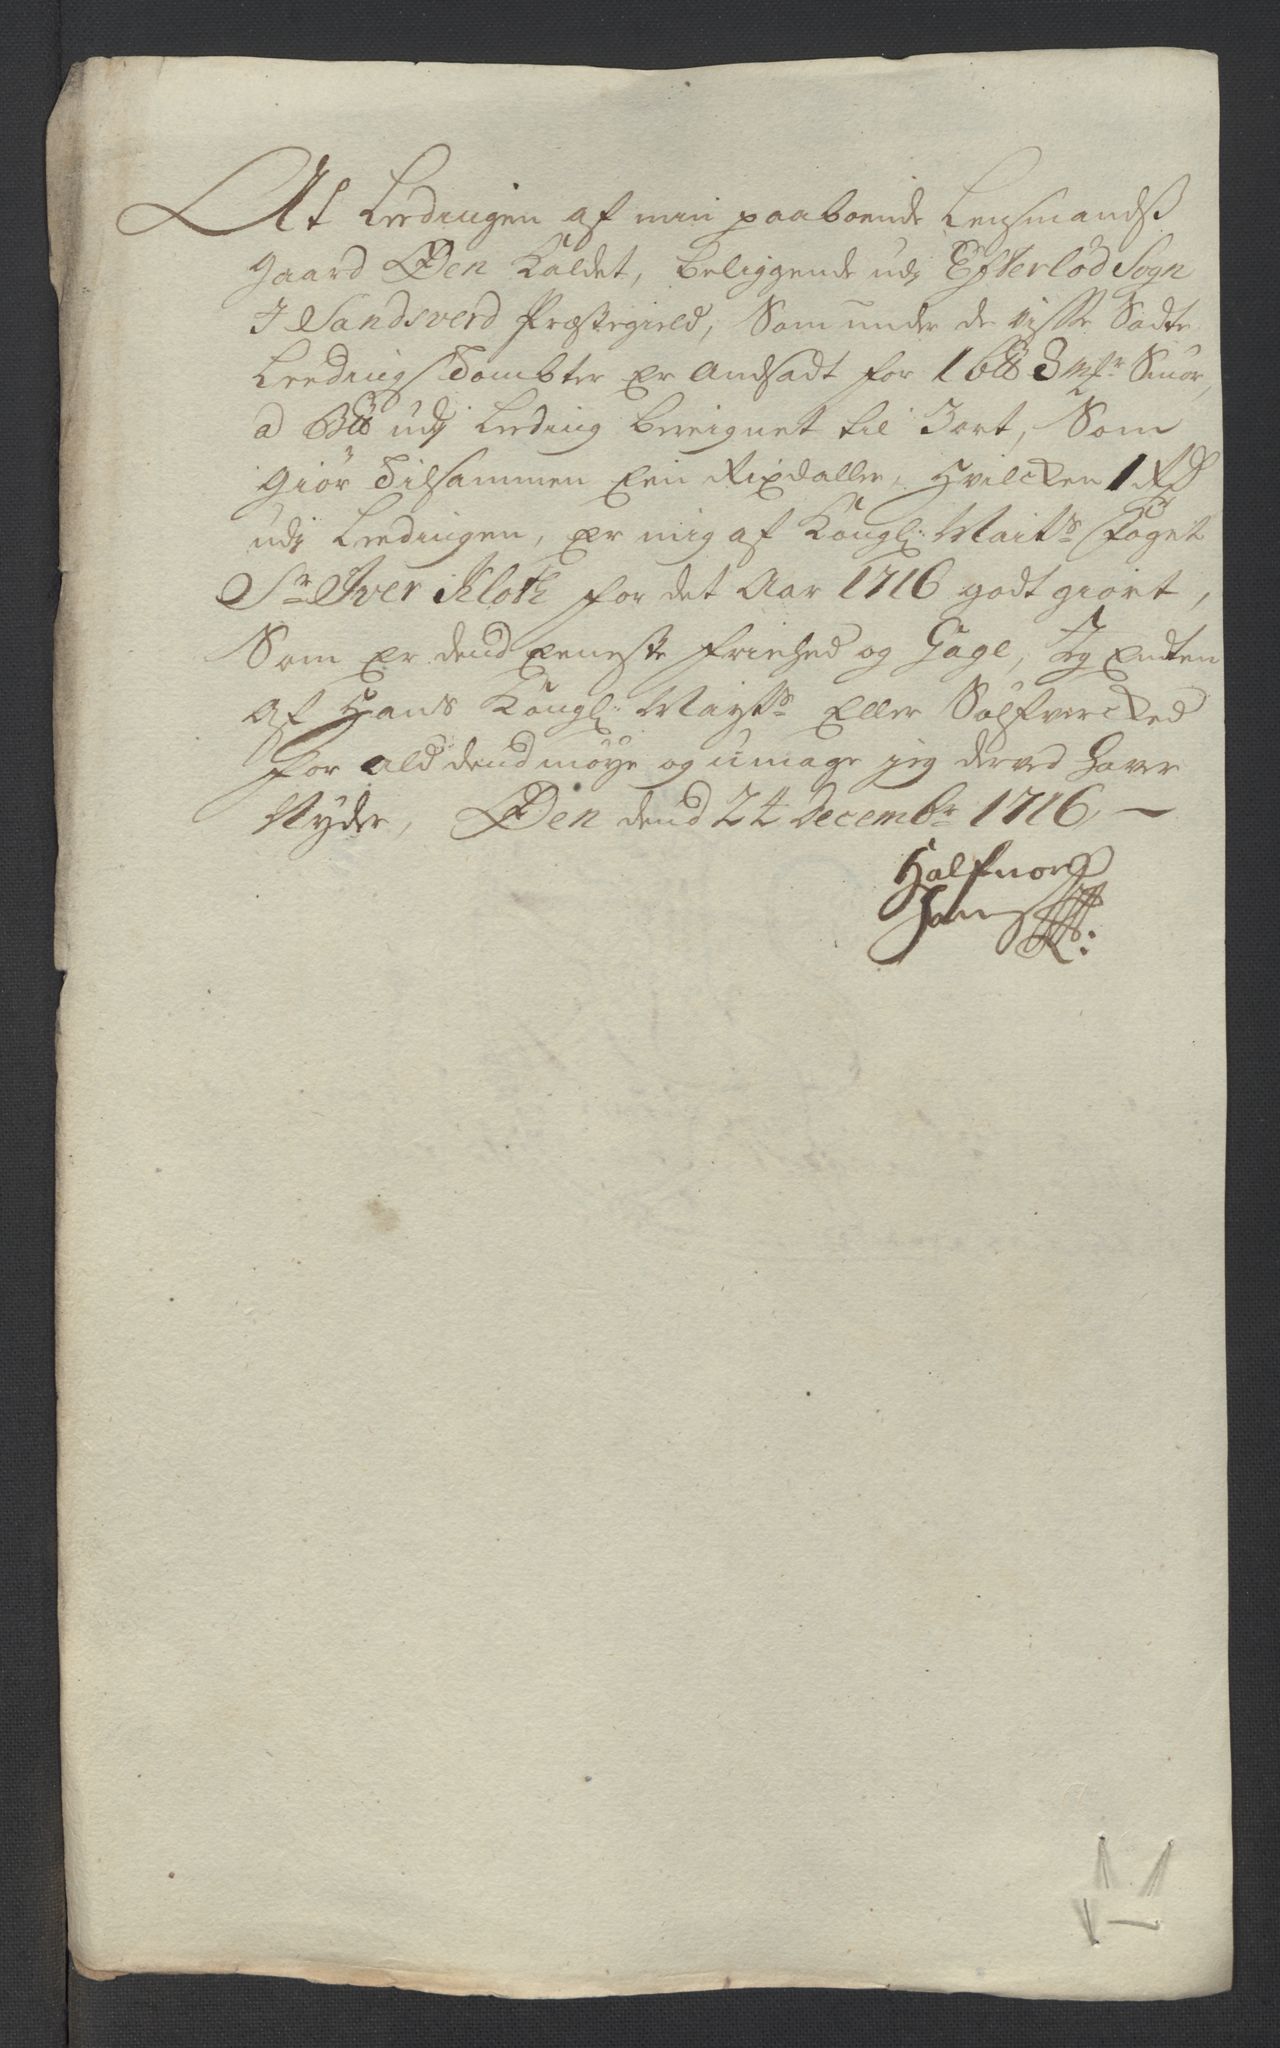 At Leedingen af min paaboende Lensmands
gaard Øen Kaldet, beliggende udj Efterløds Sogn
J Sandsverd Præstegield, Som under de visse Sadte
Leedings Tombter er Andsadt for 1 b℔ 3 mkr Smør,
a B℔ udj Leding bereignet til 3 ort, Som
giør Tilsammen een Rixdaller, Hvilcken 1 Rd
udj Leedingen, er mig af Kongl: Maits Foget
Sr Iver Kloth for det Aar 1716 godt giort,
Som er dend eeneste frihed og Gage, Jeg Endten
af Hans Kongl: Mayts Eller Sølfvercked
for ald dend møye og umage jeg derved haver
Nyder, Øen dend 24 Decembr 1716
Halfvor
Hans